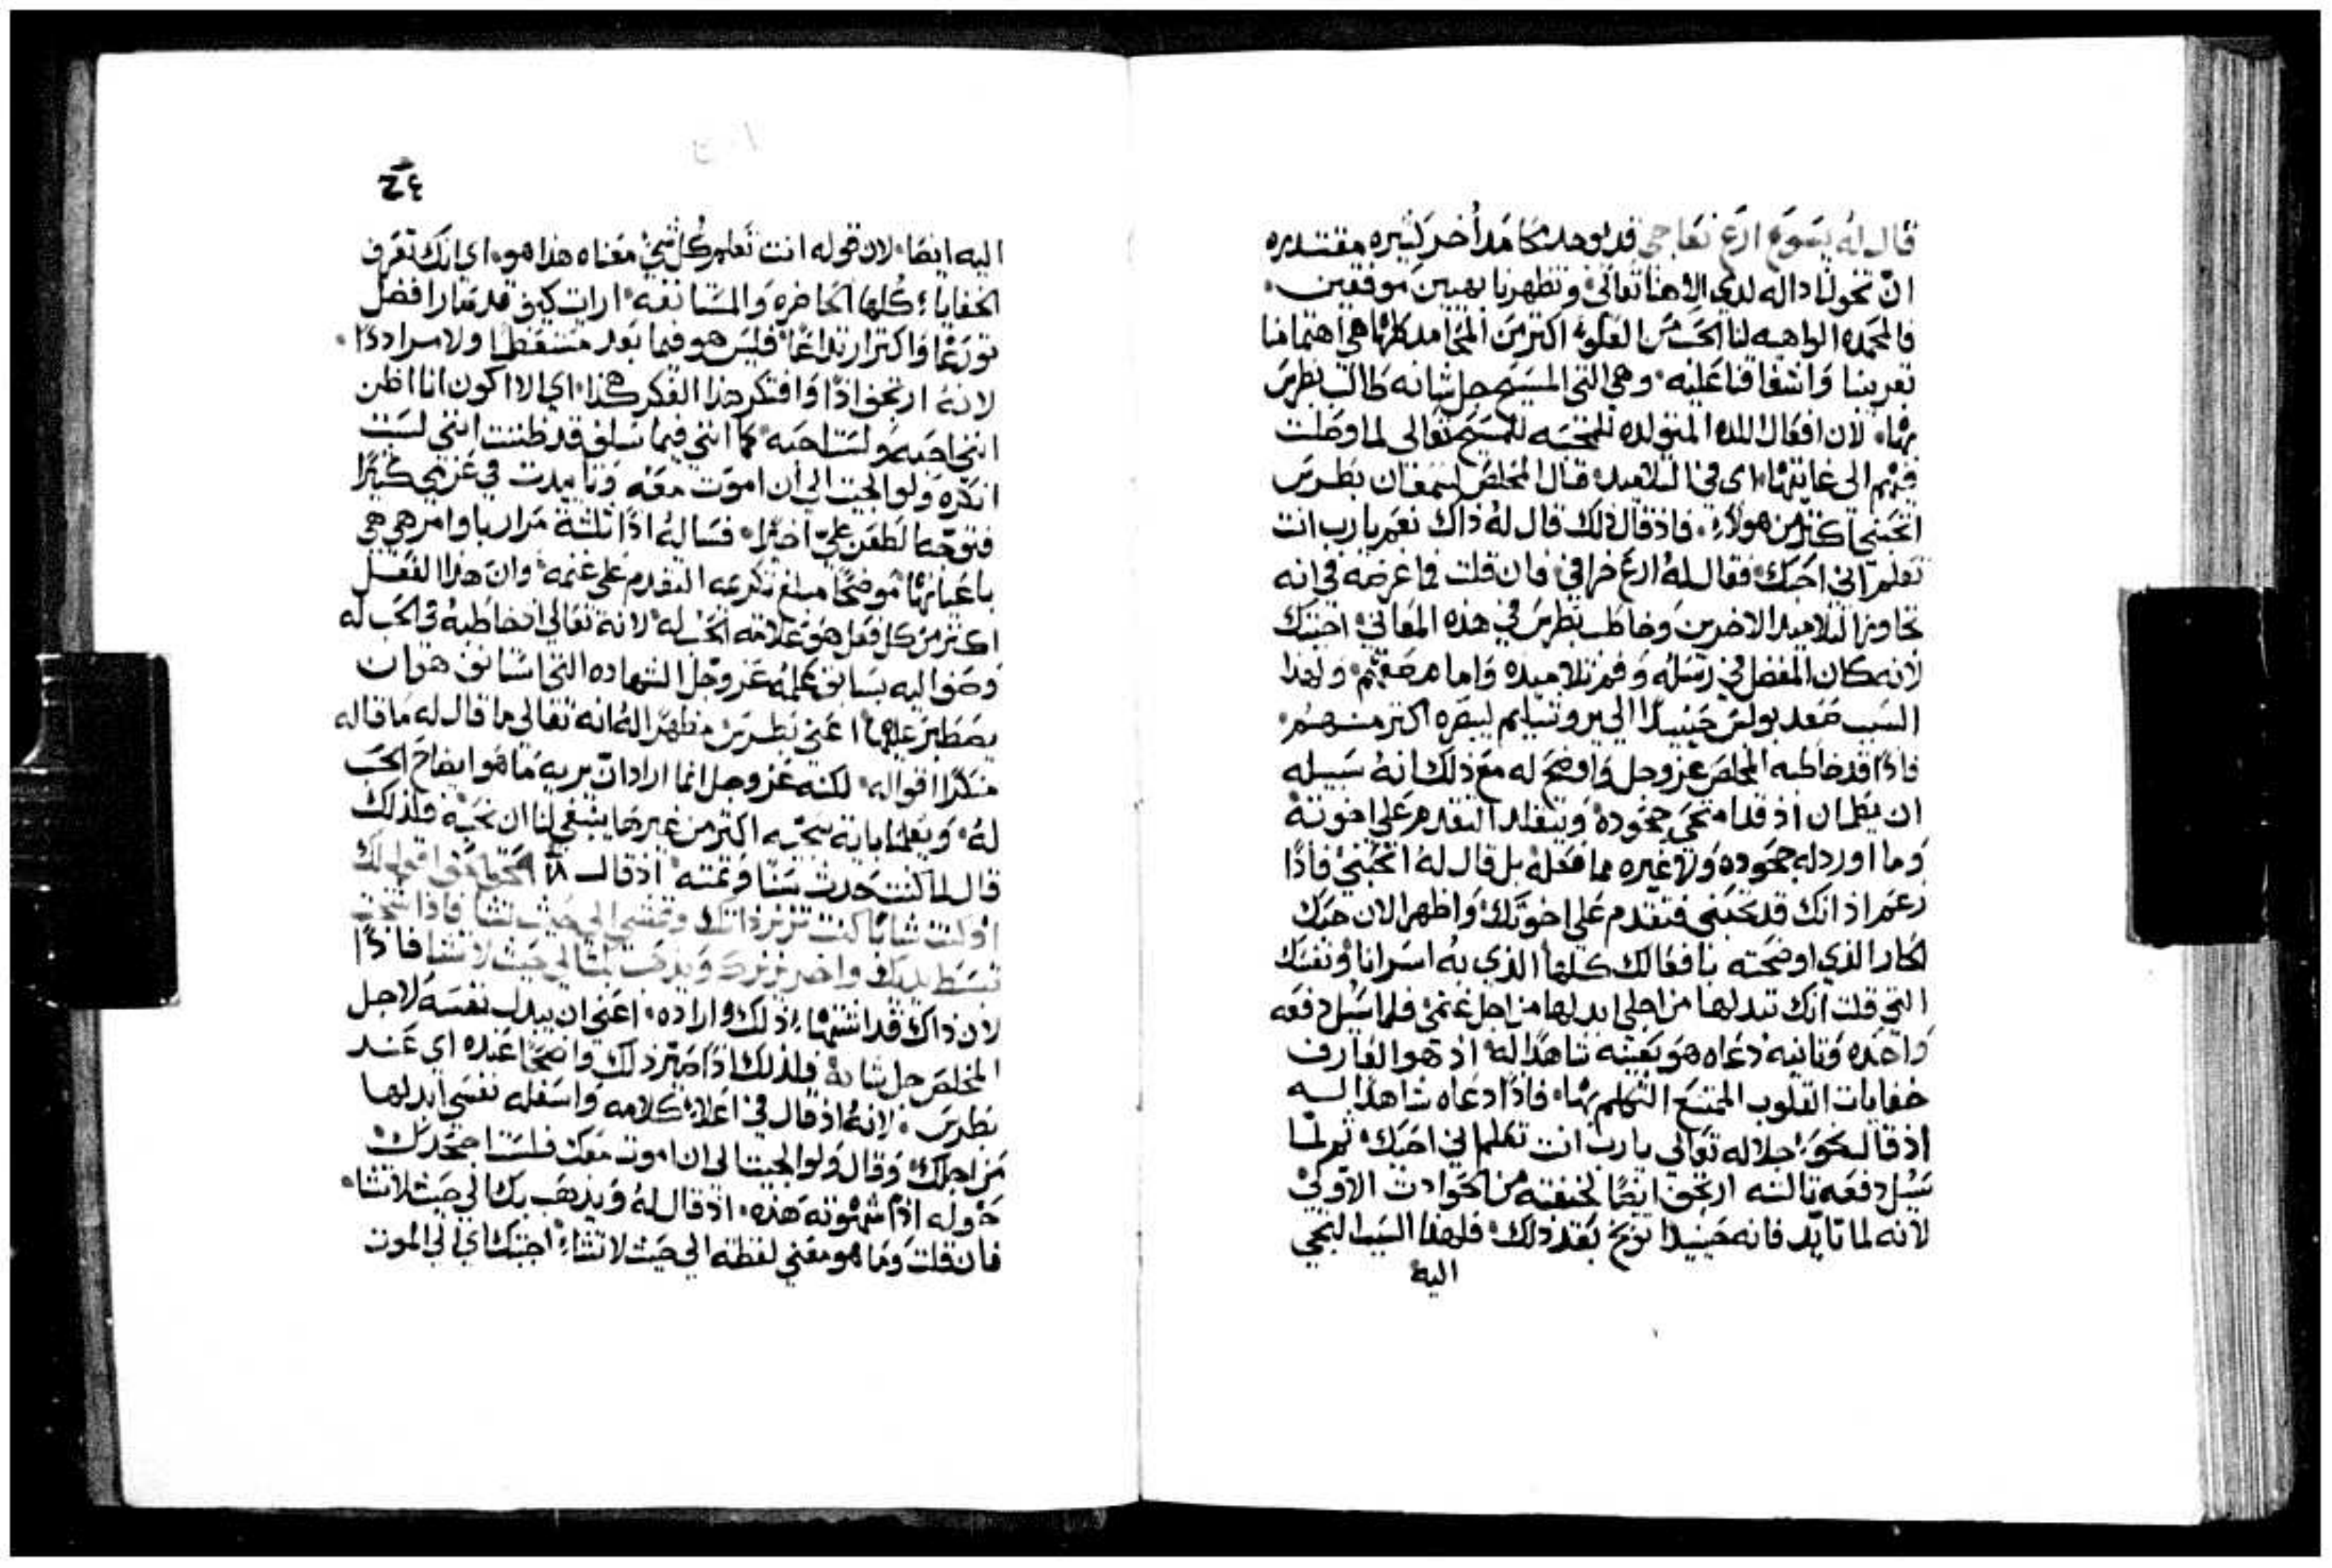 قال له يسوع ارع نعاجي قد يوجد محامد أخر كثيره مقتدره
ان تخولنا داله لدي الاهنا تعالي وتظهرنا بهيين موفقين
فالمحمده الواهبه لنا الحب من العلو اكثر من المحامد كلها هي اهتمامنا
بقريبنا واشفاقنا عليه وهي التي المسيح جل شانه طالب بطرس
بها لان افعال المتولده للمسيح تعالى لما وصلت
فيهم الى غايتها اي في التلاميد قال المخلص لسمعان بطرس
اتحبني اكثر من هولاء فاذ قال ذلك قال له ذاك نعم يا رب انت
تعلم اني احبك فقال له ارع خرافي فان قلت فما غرضه في انه
تجاوز التلاميد الاخرين وخاطب بطرس في هذه المعاني اجبتك
لانه كان المفضل في رسله وفم تلاميده واما مصفهم ولهذا
السبب صعد بولس حينيدا الي يروشليم ليبصره اكثر منهم
فاذا قد خاطبه المخلص عز وجل واوضح له مع ذلك انه سبيله
ان يطمان اذ قد امتحي جحوده ويتقلد التقدم على اخوته
وما اورد له جحوده ولا غيره مما فعله بل قال له اتحبني فاذا
زعم اذ انك قد تحبني فتقدم على اخوتك واظهر الان حبك
الحار الذي اوضحته بافعالك كلها الذي به ونفسك
التي قلت انك تبدلها من اجلي ابدلها من اجل غنمي فلما سيل دفعه
واحده وثانيه دعاه هو بعينه شاهدا له اذ هو العارف
خفايات القلوب الممتنع التكلم بها فاذا دعاه شاهدا له
اذ قال نحو جلاله تعالى يا رب انت تعلم اني احبك ثم لما
سيل دفعه ثالثه ارتجف ايضا لخيفته من الحوادث الاولي
لانه لما تايد فانه حينيدا توبخ بعد ذلك فلهذا السبب التجي
اليه
٤ح
اليه ايضا لان قوله انت تعلم كل شي معناه هذا هو اي انك تعرف
الخفايا كلها الحاضره والمستانفه ارايت كيف قد صار افضل
تورعا واكثر ارتداعا فليس هو فيما بعد ولا مرادا
لانه ارتجف اذا وافتكر هذا الفكر هكذا اي الا اكون انا اظن
انني احبه ولست احبه كما انني فيما سلف قد ظننت انني لست
انكره ولو الجيت الي ان اموت معه وتايدت في عزمي كثيرا
فتوجه الطعن علي اخيرا فساله اذا ثلثة مرار باوامر هي هي
باعيانها موضحا مبلغ تكرمه التقدم علي غنمه وان هذا الفعل
اكثر من كل فعل هو علامة الحب له لانه تعالي اذ خاطبه في الحب له
وصف اليه بسابق علمه عز وجل الشهاده التي شانف هو ان
يصطبر عليها اعني بطرس مظهرا له انه تعالي ما قال له ما قاله
منكرا اقواله لكنه عز وجل انما اراد ان يريه ما هو ايضاح الحب
له ويعلمنا بانه نحبه اكثر من غير ما ينبغي لنا ان نحبه فلذلك
قال لما كنت حدث سنا فرغته اذ قال الحق الحق اقول لك
اذ كنت شابا كنت تزنر ذاتك وتمشي الي حيث تشا فاذا شخت
تبسط يديك واخر يزنرك ويذهب بك الي حيث لا تشا فاذا
لان ذاك قد اشتها ذلك واراده اعني ان يبدل نفسه لاجل
المخلص جل شانه فلذلك اذا صير ذلك واضحا عنده اي عند
بطرس لانه اذ قال في اعلاء كلامه واسفله نفسي ابدلها
من اجلك وقال ولو الجيت الي ان اموت معك فلست اجحدك
خوله اذا شهوته هذه اذ قال له ويذهب بك الي حيث لا تشا
فان قلت وما هو معني لفظة الي حيث لا تشا اجبتك اي الي الموت